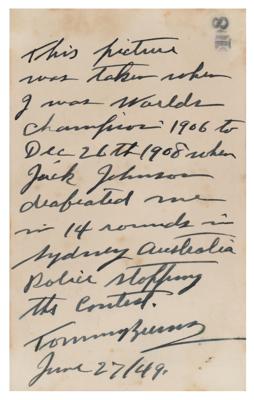 This picture
was taken when
I was Worlds
Champion 1906 to
Dec 26th 1908 when
Jack Johnson
deafeated me
in 14 rounds in
Sydney Australia
Police stopping
the Contest.
Tommy Burns
June 27/49.